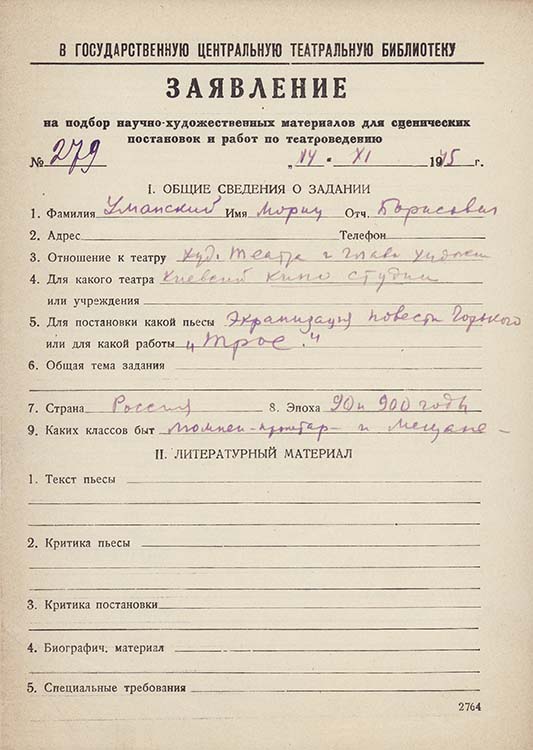 В ГОСУДАРСТВЕННУЮ ЦЕНТРАЛЬНУЮ ТЕАТРАЛЬНУЮ БИБЛИОТЕКУ
ЗАЯВЛЕНИЕ
на подбор научно-художественных материалов для сценических
постановок и работ по театроведению
№ 279 „14 " XI 1945 г.
I. ОБЩИЕ СВЕДЕНИЯ О ЗАДАНИИ
1. Фамилия Уманский Имя Мориц Отч. Борисович
2. Адрес Телефон
3. Отношение к театру худ. театра и глав
4. Для какого театра Киевский кино студии
или учреждения
5. Для постановки какой пьесы Экранизация повести Горького
или для какой работы „Трое."
6. Общая тема задания
7. Страна Россия 8. Эпоха 90 и 900 годы
9. Каких классов быт люмпен-пролетар- и мещане-
II. ЛИТЕРАТУРНЫЙ МАТЕРИАЛ
1. Текст пьесы
2. Критика пьесы
3. Критика постановки
4. Биографич. материал
5. Специальные требования
2764